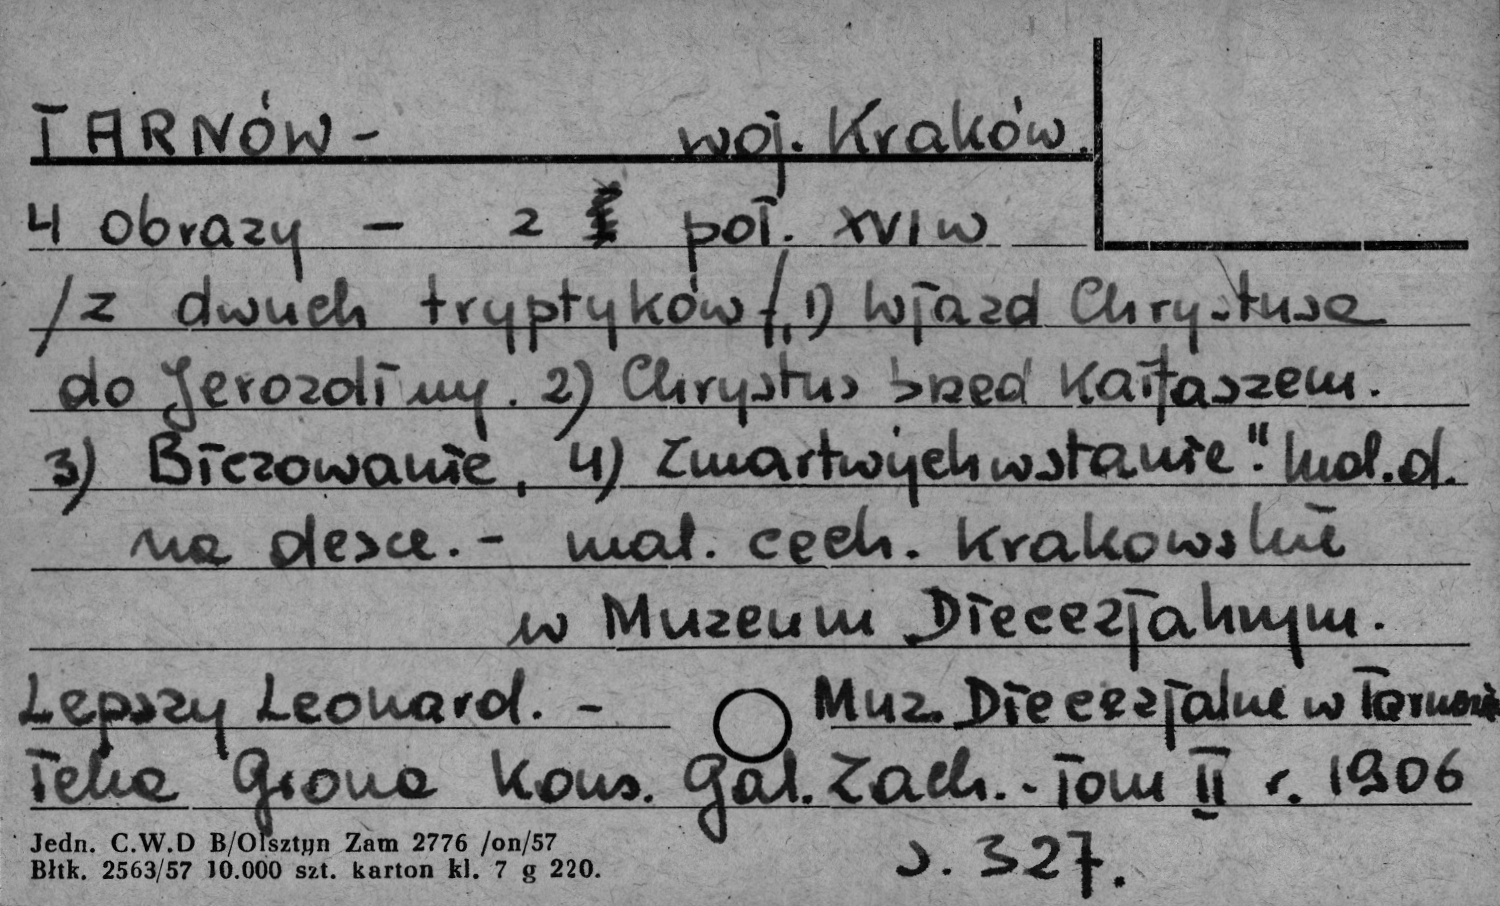 TARNÓW - woj. Kraków.
4 obrazy - 2 poł. XVI w
/z dwuch tryptyków/, 1) Wjazd Chrystusa
do Jerozolimy. 2) Chrystus przed Kaifaszem.
3) Biczowanie, 4) Zmartwychwstanie." mal. d.
na desce. - mal. cech. Krakowskie
w Muzeum Diecezjalnym.
Lepszy Leonard. - Muz. Diecezjalne w Tarnowie
Teka Grona Kons. Gal. Zach. - Tom II r. 1906
s. 327.
Jedn. C.W.D B/Olsztyn Zam 2776 /on/57
Błtk. 2563/57 10.000 szt. karton kl. 7 g 220.